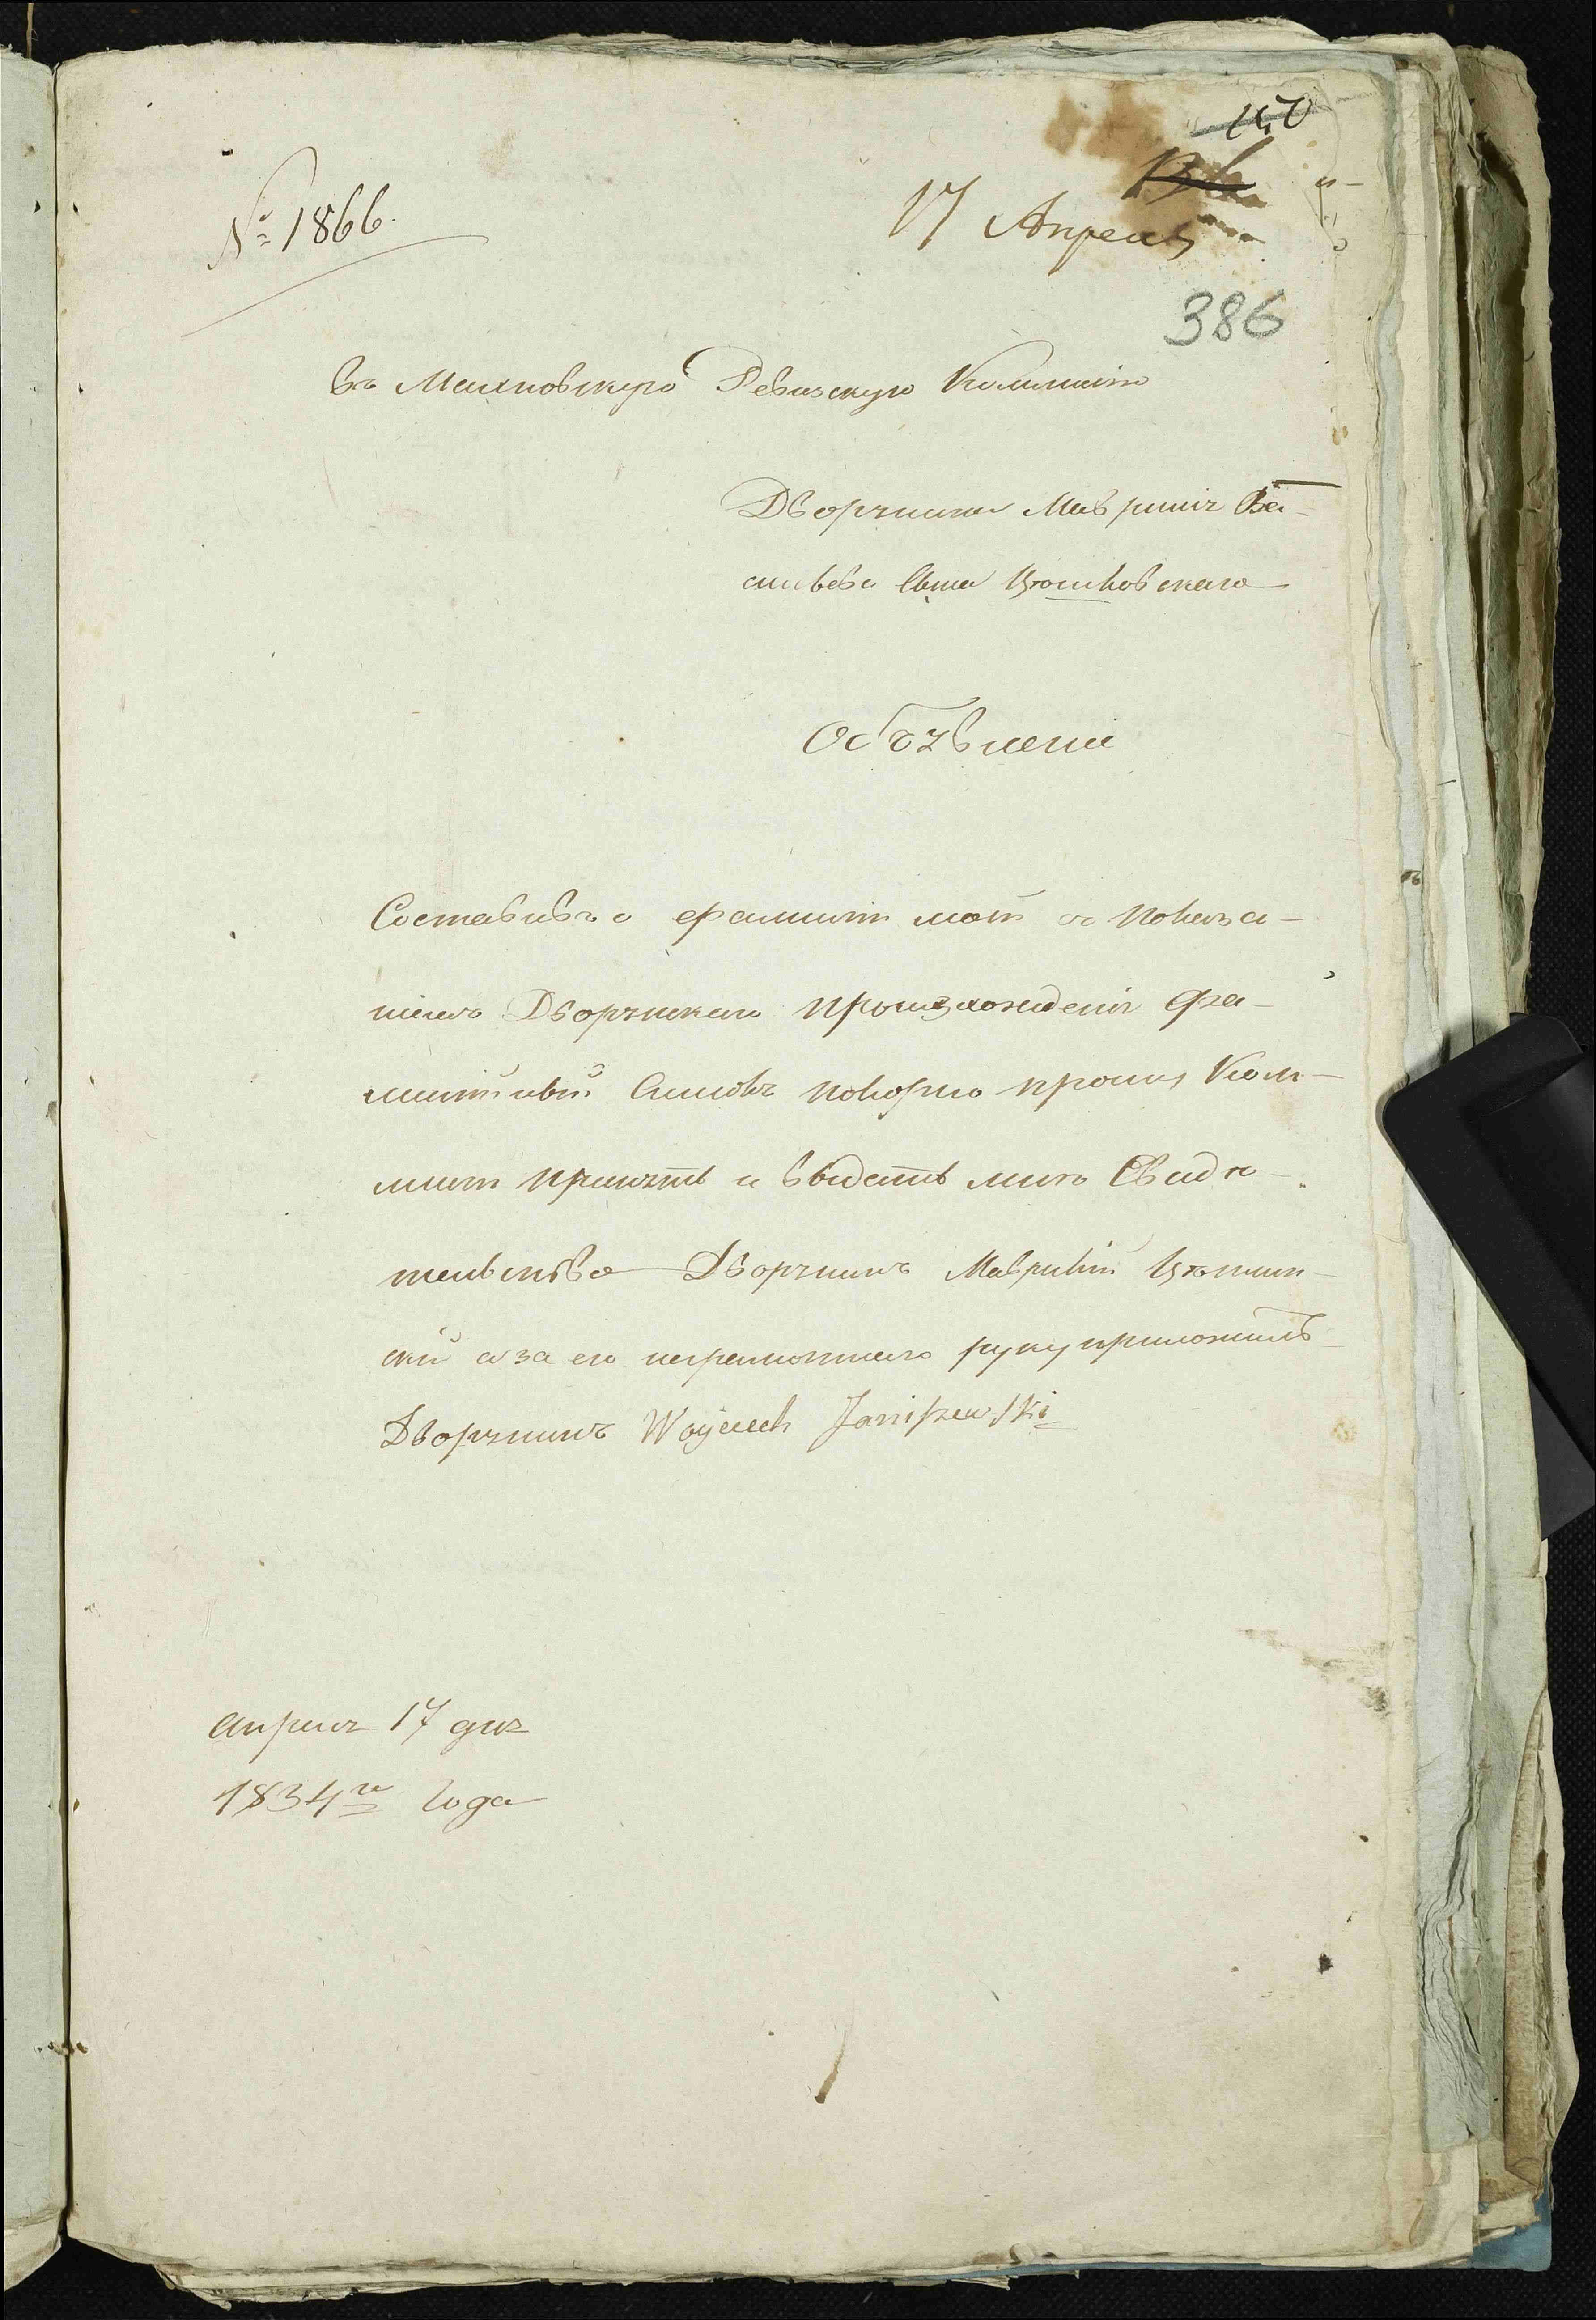 № 1866.
17 Апреля
386
въ Махновскую Ревизскую Коммисію
Дворянина Маврикія Ва-
сильева Сына
Объявленіе
Составивъ о фамиліи моей съ показа-
ніемъ Дворянскаго происхожденія Фа-
милійный Списокъ покорно прошу Ком-
мисію принять и выдать мнѣ Свидѣ-
тельство Дворянинъ Маврикій
скій а за его неграмотнаго руку приложилъ
Дворянинъ Woyciech Janiszewski
апреля 17 дня
1834го года